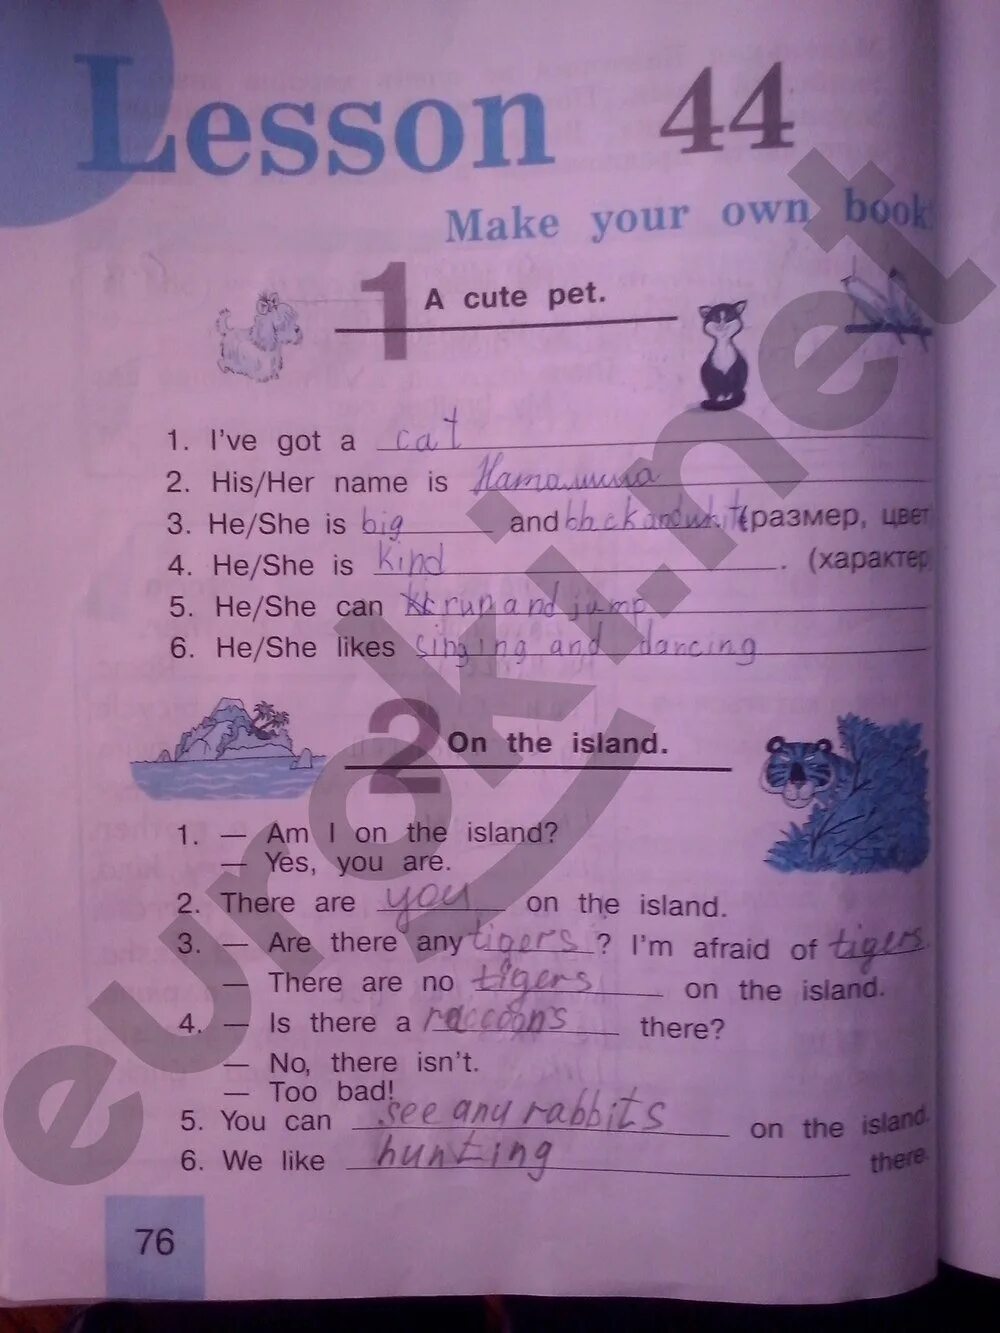 Lesson 44
Make your own book
1 A cute pet.
1. I've got a cat
2. His/Her name is Наташиша
3. He/She is big and black and white (размер, цвет
4. He/She is kind. (характер
5. He/She can run and jump
6. He/She likes singing and dancing
2 On the island.
1. — Am I on the island?
— Yes, you are.
2. There are you on the island.
3. — Are there any tigers? I'm afraid of tigers.
— There are no tigers on the island.
4. — Is there a raccoons there?
— No, there isn't.
— Too bad!
5. You can see any rabbits on the island.
6. We like hunting there.
76
euroki.net